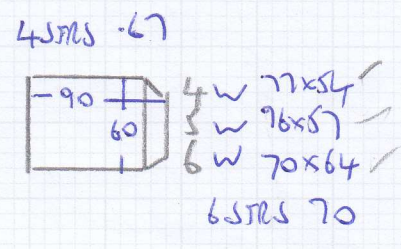 4 STRS .67
90
60
4 W 77x54
5 W 96x57
6 W 70x64
6 STRS 70